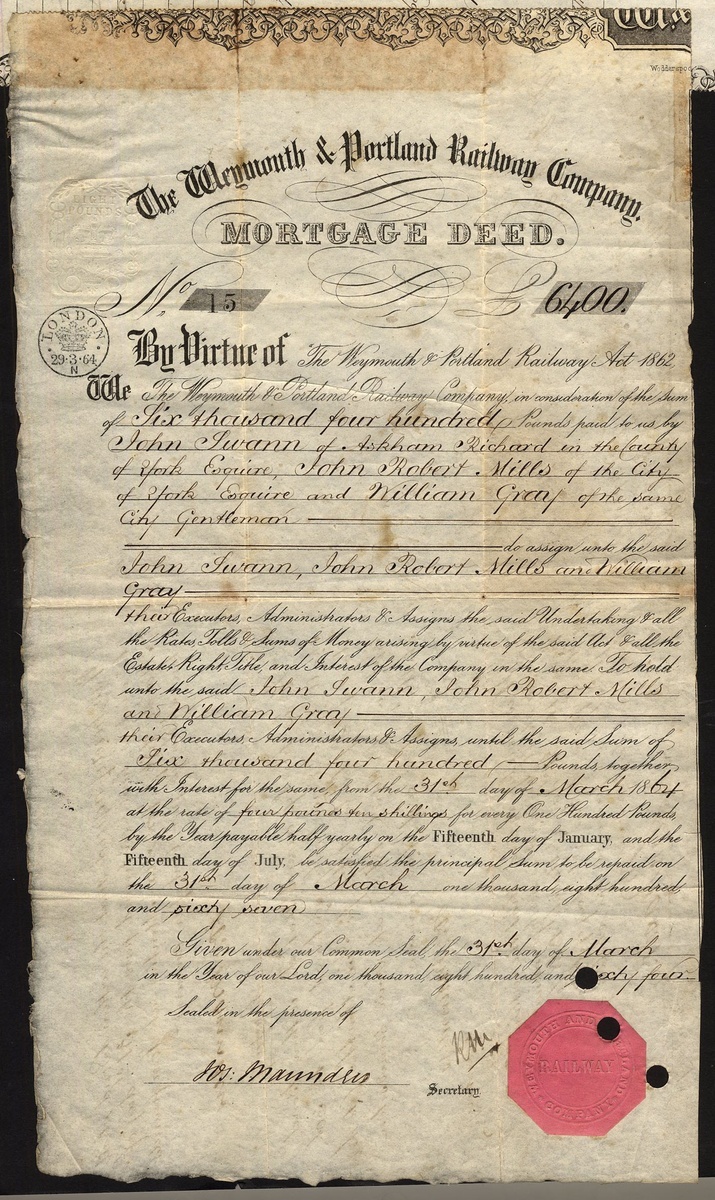 Wedderspoo
The Weymouth & Portland Railway Company.
MORTGAGE DEED.
No 15 £ 6400.
LONDON
29·3·64
N
By Virtue of The Weymouth & Portland Railway Act 1862
We The Weymouth & Portland Railway Company, in consideration of the Sum
of Six thousand four hundred Pounds paid to us by
John Swann of Askham Richard in the County
of York Esquire, John Robert Mills of the City
of York Esquire and William Gray of the same
City Gentleman
do assign unto the said
John Swann, John Robert Mills and William
Gray
their Executors, Administrators & Assigns, the said Undertaking & all
the Rates, Tolls & Sums of Money arising by virtue of the said Act & all the
Estate, Right, Title, and Interest of the Company in the same. To hold
unto the said John Swann, John Robert Mills
and William Gray
their Executors, Administrators & Assigns, until the said Sum of
Six thousand four hundred Pounds, together
with Interest for the same, from the 31st day of March 1864
at the rate of four pounds ten shillings for every One Hundred Pounds,
by the Year, payable half yearly on the Fifteenth day of January, and the
Fifteenth day of July, be satisfied the principal Sum to be repaid on
the 31st day of March one thousand, eight hundred,
and sixty seven
Given under our Common Seal, the 31st day of March
in the Year of our Lord, one thousand, eight hundred, and sixty four
Sealed in the presence of
Jos: Maunders
Secretary.
WEYMOUTH AND PORTLAND
RAILWAY
COMPANY